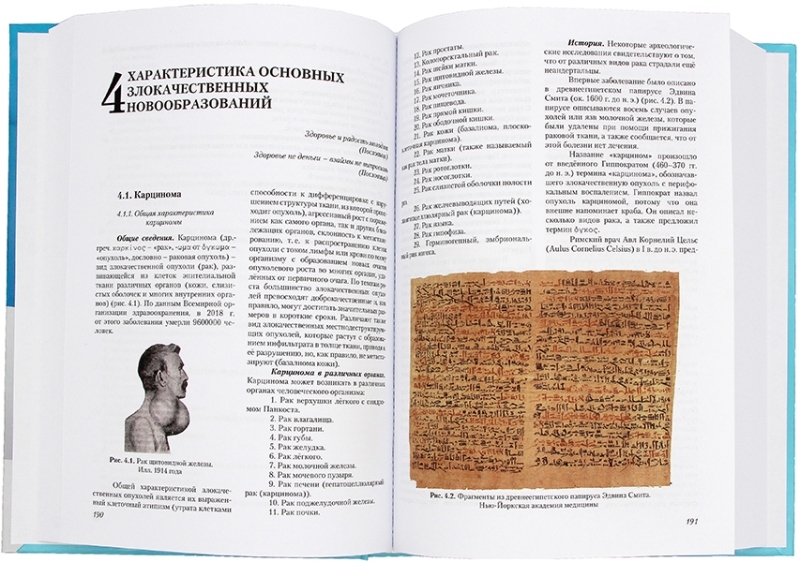 4
ХАРАКТЕРИСТИКА ОСНОВНЫХ
ЗЛОКАЧЕСТВЕННЫХ
НОВООБРАЗОВАНИЙ
Здоровье и радость молодят
(Пословица)
Здоровье не деньги – взаймы не попросишь
(Пословица)
4.1. Карцинома
4.1.1. Общая характеристика
карциномы
Общие сведения. Карцинома (др.-
греч. καρκίνος – «рак», -ωμα от ὄγκωμα –
«опухоль», дословно – раковая опухоль) –
вид злокачественной опухоли (рак), разви-
вающейся из клеток эпителиальной
ткани различных органов (кожи, слизи-
стых оболочек и многих внутренних орга-
нов) (рис. 4.1). По данным Всемирной ор-
ганизации здравоохранения, в 2018 г.
от этого заболевания умерли 9600000 че-
ловек.
Рис. 4.1. Рак щитовидной железы.
Илл. 1914 года
Общей характеристикой злокаче-
ственных опухолей является их выражен-
ный клеточный атипизм (утрата клетками
190
способности к дифференцировке с нару-
шением структуры ткани, из которой проис-
ходит опухоль), агрессивный рост с пораже-
нием как самого органа, так и других близ-
лежащих органов, склонность к метастази-
рованию, т.е. к распространению клеток
опухоли с током лимфы или крови по всему
организму с образованием новых очагов
опухолевого роста во многих органах, уда-
лённых от первичного очага. По темпам ро-
ста большинство злокачественных опухо-
лей превосходят доброкачественные и, как
правило, могут достигать значительных раз-
меров в короткие сроки. Различают также
вид злокачественных местнодеструктирую-
щих опухолей, которые растут с образова-
нием инфильтрата в толще ткани, приводя к
её разрушению, но, как правило, не метаста-
зируют (базалиома кожи).
Карцинома в различных органах.
Карцинома может возникать в различных
органах человеческого организма:
1. Рак верхушки лёгкого с синдро-
мом Панкоста.
2. Рак влагалища.
3. Рак гортани.
4. Рак губы.
5. Рак желудка.
6. Рак лёгкого.
7. Рак молочной железы.
8. Рак мочевого пузыря.
9. Рак печени (гепатоцеллюлярный
рак (карцинома)).
10. Рак поджелудочной железы.
11. Рак почки.
12. Рак простаты.
13. Колоноректальный рак.
14. Рак шейки матки.
15. Рак щитовидной железы.
16. Рак яичника.
17. Рак мочеточника.
18. Рак пищевода.
19. Рак прямой кишки.
20. Рак ободочной кишки.
21. Рак кожи (базалиома, плоско-
клеточная карцинома).
22. Рак матки (также называемый
как рак тела матки).
23. Рак ротоглотки.
24. Рак носоглотки.
25. Рак слизистой оболочки полости
26. Рак желчевыводящих путей (хо-
(карцинома)).
27. Рак языка.
28. Рак гипофиза.
29. Герминогенный, эмбриональ-
ный рак яичка.
История. Некоторые археологиче-
ские исследования свидетельствуют о том,
что от различных видов рака страдали ещё
неандертальцы.
Впервые заболевание было описано
в древнеегипетском папирусе Эдвина
Смита (ок. 1600 г. до н. э.) (рис. 4.2). В па-
пирусе описываются восемь случаев опу-
холей или язв молочной железы, которые
были удалены при помощи прижигания
раковой ткани, а также сообщается, что от
этой болезни нет лечения.
Название «карцином» произошло
от введённого Гиппократом (460–370 гг.
до н. э.) термина «карцинома», обозначав-
шего злокачественную опухоль с перифо-
кальным воспалением. Гиппократ назвал
опухоль карциномой, потому что она
внешне напоминает краба. Он описал не-
сколько видов рака, а также предложил
термин ὄγκος.
Римский врач Авл Корнелий Цельс
(Aulus Cornelius Celsius) в I в. до н. э. пред-
Рис. 4.2. Фрагменты из древнеегипетского папируса Эдвина Смита.
Нью-Йоркская академия медицины
191